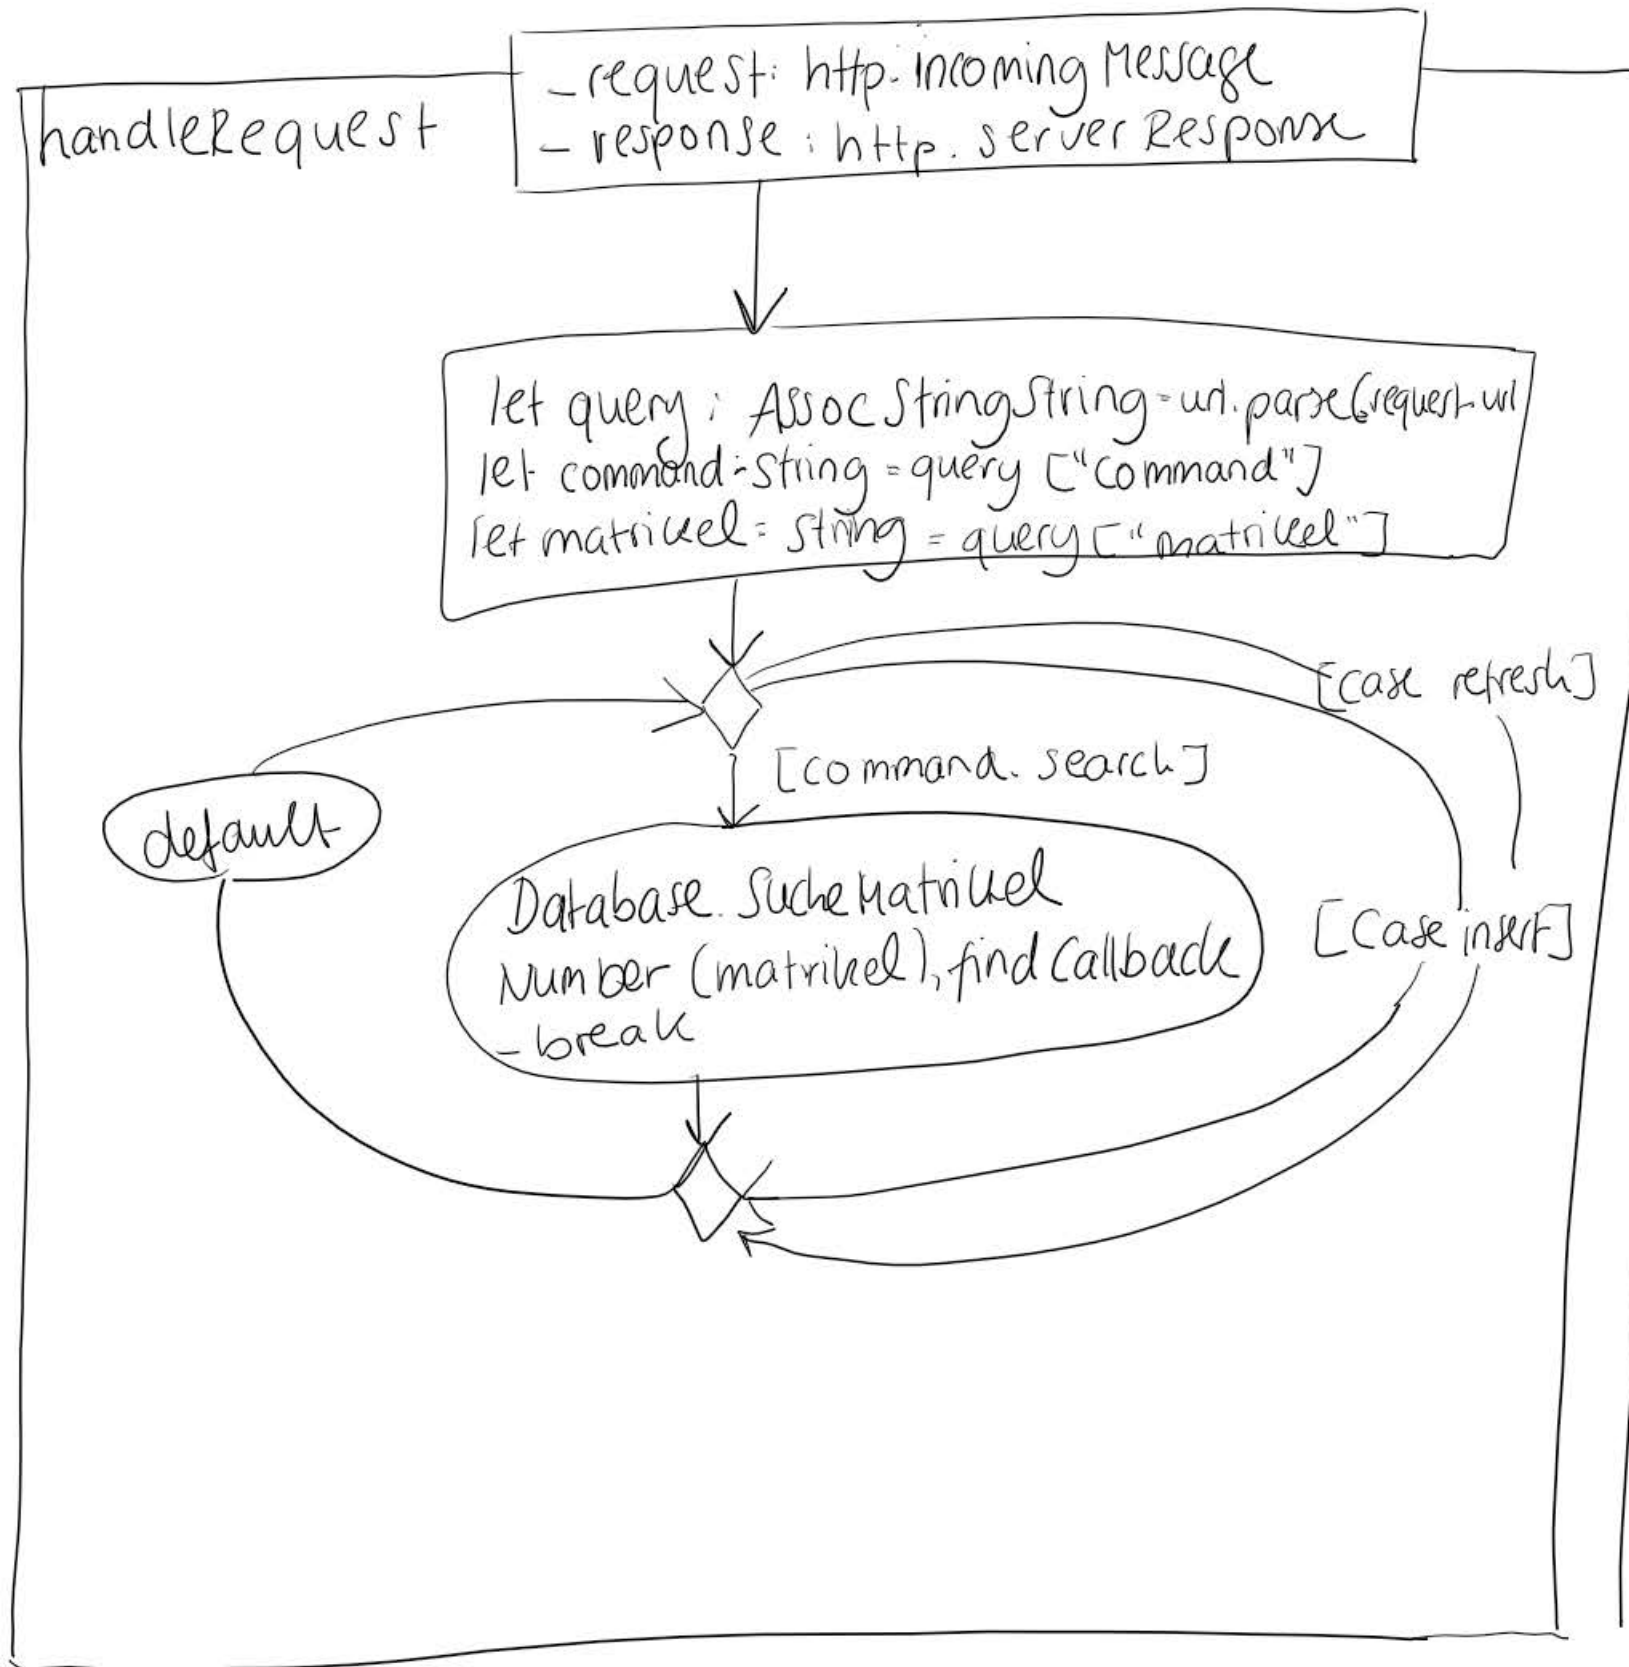 handleRequest
- request: http. incoming Message
- response : http. server Response
let query : Assoc String String = url. parse (request. url
let command : String = query ["command"]
let matrikel = String = query ["matrikel"]
[case refresh]
[command. search]
default
Database. Suche Matrikel
Number (matrikel), find Callback
- break
[Case insert]